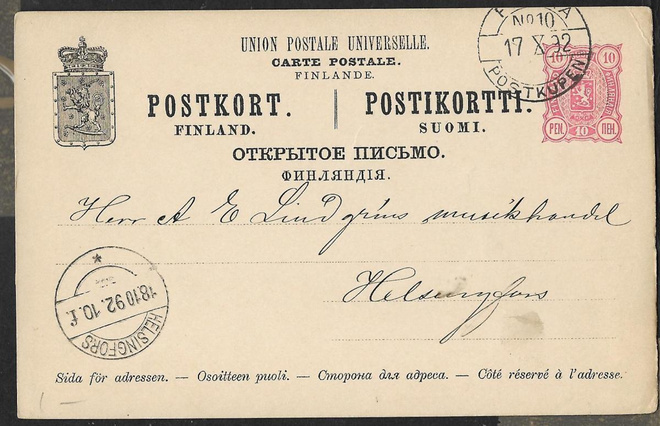 UNION POSTALE UNIVERSELLE.
CARTE POSTALE.
FINLANDE.
POSTKORT. POSTIKORTTI.
FINLAND. SUOMI.
ОТКРЫТОЕ ПИСЬМО.
ФИНЛЯНДІЯ.
No 10
17 X 92
POSTKUPEN
10 10
PEN. 10 ПЕН.
Herr A E Lindgréns musikhandel
Helsingfors
18.10.92.10.f.
HELSINGFORS
Sida för adressen. — Osoitteen puoli. — Сторона для адреса. — Côté réservé à l'adresse.